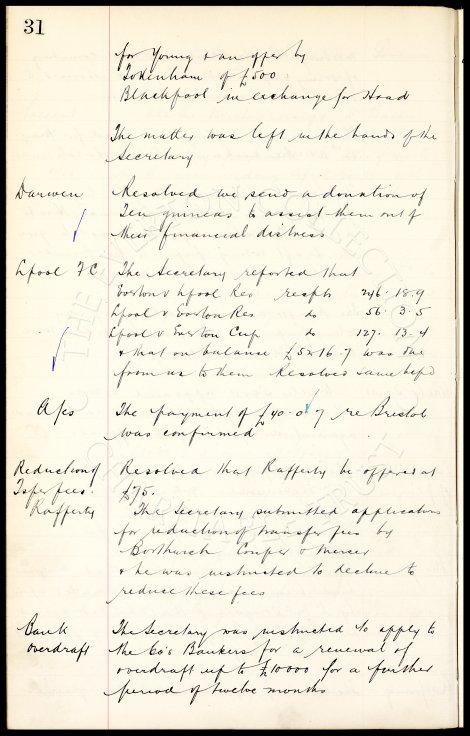 31
for Young & an offer by
Tottenham of £500
Blackpool in exchange for Hoad
The matter was left in the hands of the
Secretary
Darwen Resolved we send a donation of
Ten guineas to assist them out of
their financial distress
Lpool FC The Secretary reported that
Everton v Lpool Res recpts 246. 18. 9
Lpool v Everton Res do 56. 3. 5
Lpool v Everton Cup do 127. 13. 4
& that on balance £52. 16. 7 was due
from us to them Resolved same be pd
A/cs The payment of £40. 0. 7 re Bristol
was confirmed
Reduction of Resolved that Rafferty be offered at
Tsfer fees. £75.
Rafferty The Secretary submitted application
for reduction of transfer fees by
Borthwick Couper & Mercer
& he was instructed to decline to
reduce these fees
Bank The Secretary was instructed to apply to
overdraft the Co's Bankers for a renewal of
overdraft up to £10000 for a further
period of twelve months
THE EVERTON COLLECTION